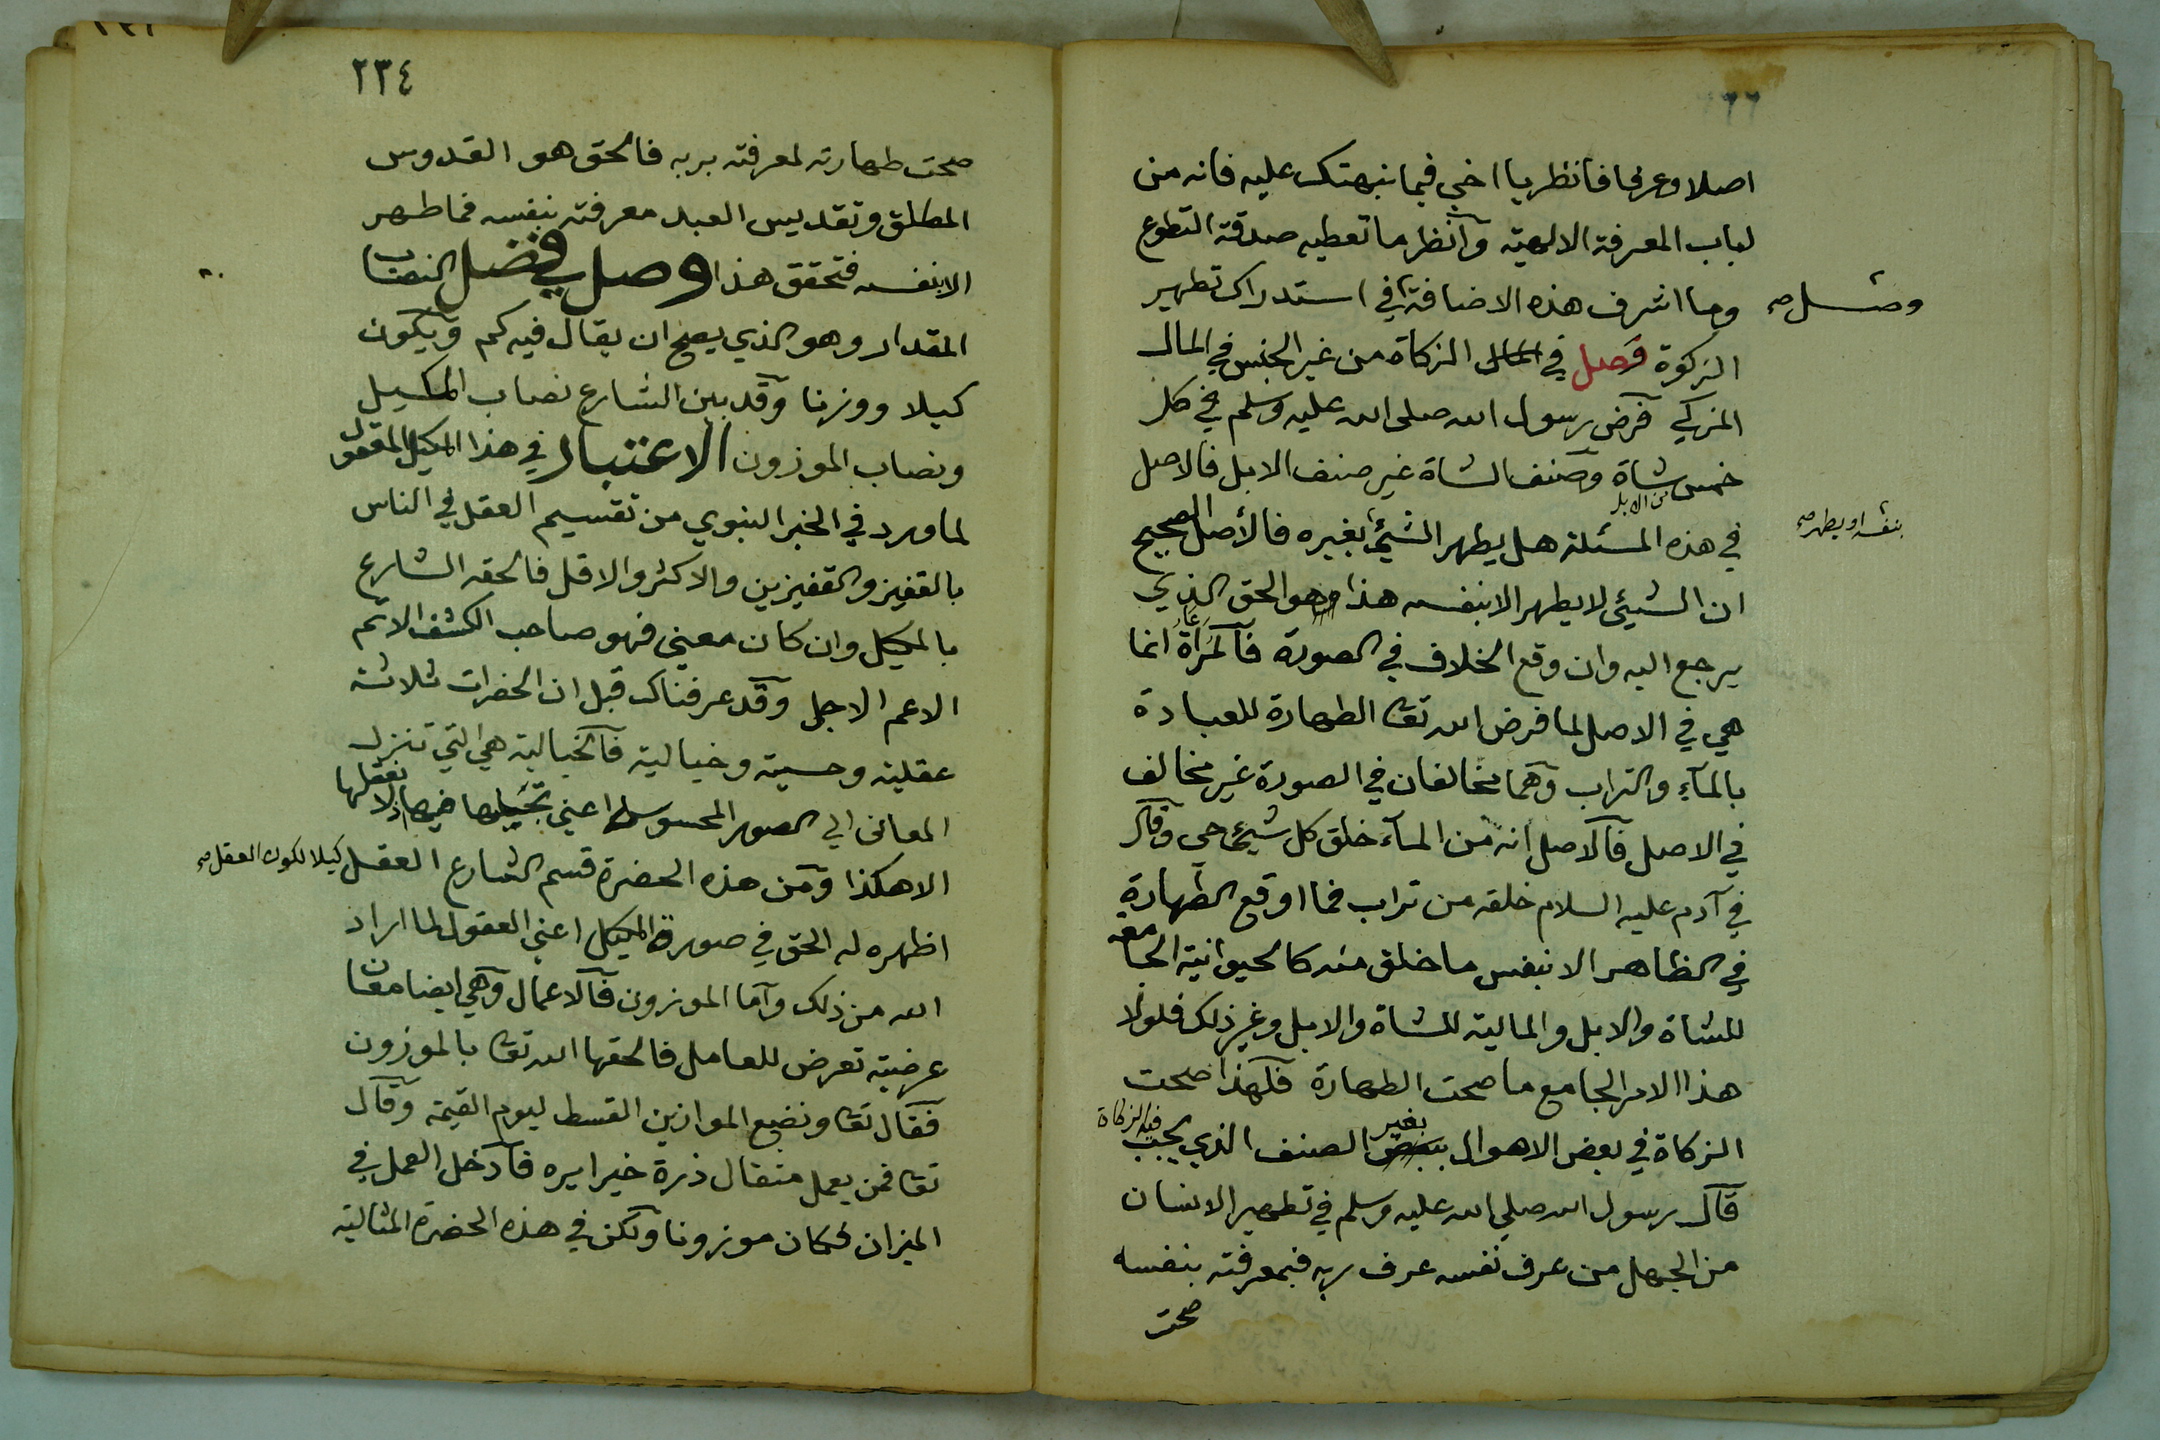 اصلا وعرفا فانظر يا اخي فيما نبهتك عليه فانه من
لباب المعرفة الالهية وانظر ما تعطيه صدقة التطوع
وما اشرف هذه الاضافة في استدراك تطهير
وصل صح
الزكوة فصل في المال الزكاة من غير الجنس في المال
المزكي فرض رسول الله صلى الله عليه وسلم في كل
خمس شاة وصنف الشاة غير صنف الابل فالاصل
من الابل
في هذه المسئلة هل يطهر الشيئ بغيره فالأصل الصحيح
بنفسه او يطهر صح
ان الشيئ لا يطهر الا بنفسه هذا وهو الحق الذي
يرجع اليه وان وقع الخلاف في الصورة فالمراعاة انما
هي في الاصل لما فرض الله تعا الطهارة للعبادة
بالمآء والتراب وهما مخالفان في الصورة غير مخالف
في الاصل فالاصل انه من المآء خلق كل شيئ حي وقال
في آدم عليه السلام خلقه من تراب فما اوقع الطهارة
في الظاهر الا بنفس ما خلق منه كالحيوانية الجامعة
للشاة والابل والمالية للشاة والابل وغير ذلك فلولا
هذا الامر الجامع ما صحت الطهارة فلهذا صحت
الزكاة في بعض الاموال ببعض بغير الصنف الذي يجب فيه الزكاة
قال رسول الله صلى الله عليه وسلم في تطهير الانسان
من الجهل من عرف نفسه عرف ربه فبمعرفته بنفسه
صحت
٢٣٤
صحت طهارته لمعرفته بربه فالحق هو القدوس
المطلق وتقديس العبد معرفته بنفسه فما طهر
الا بنفسه فتحقق هذا وصل في فضل النصاب
المقدار وهو الذي يصح ان يقال فيه كم ويكون
كيلا ووزنا وقد بين الشارع نصاب المكيل
ونصاب الموزون الاعتبار في هذا المكيل المعقول
لما ورد في الخبر النبوي من تقسيم العقل في الناس
بالقفيز والقفيزين والاكثر والاقل فالحقه الشارع
بالمكيل وان كان معنى فهو صاحب الكشف الاتم
الاعم الاجلى وقد عرفناك قبل ان الحضرات ثلاثة
عقلية وحسية وخيالية فالخيالية هي التي تنزل
المعاني الى الصور المحسوسة اعني تخيلها فيها اذ لا نعقلها
الا هكذا ومن هذه الحضرة قسم الشارع العقل كيلا لكون العقل صح
اظهره له الحق في صورة المكيل اعني العقول لما اراد
الله من ذلك واما الموزون فالاعمال وهي ايضا معان
عرضية تعرض للعامل فالحقها الله تعا بالموزون
فقال تعا ونضع الموازين القسط ليوم القيمة وقال
تعا فمن يعمل مثقال ذرة خيرا يره فادخل العمل في
الميزان فكان موزونا ولكن في هذه الحضرة المثالية